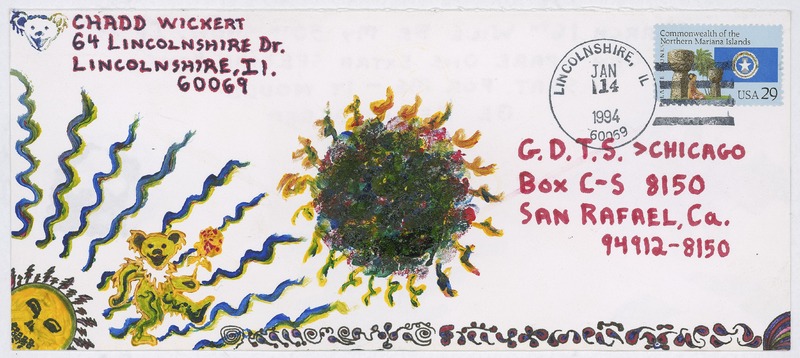 CHADD WICKERT
64 LINCOLNSHIRE Dr.
LINCOLNSHIRE, Il.
60069
LINCOLNSHIRE, IL
JAN
14
1994
60069
Commonwealth of the
Northern Mariana Islands
USA 29
G.D.T.S. >CHICAGO
Box C-S 8150
SAN RAFAEL, Ca.
94912-8150